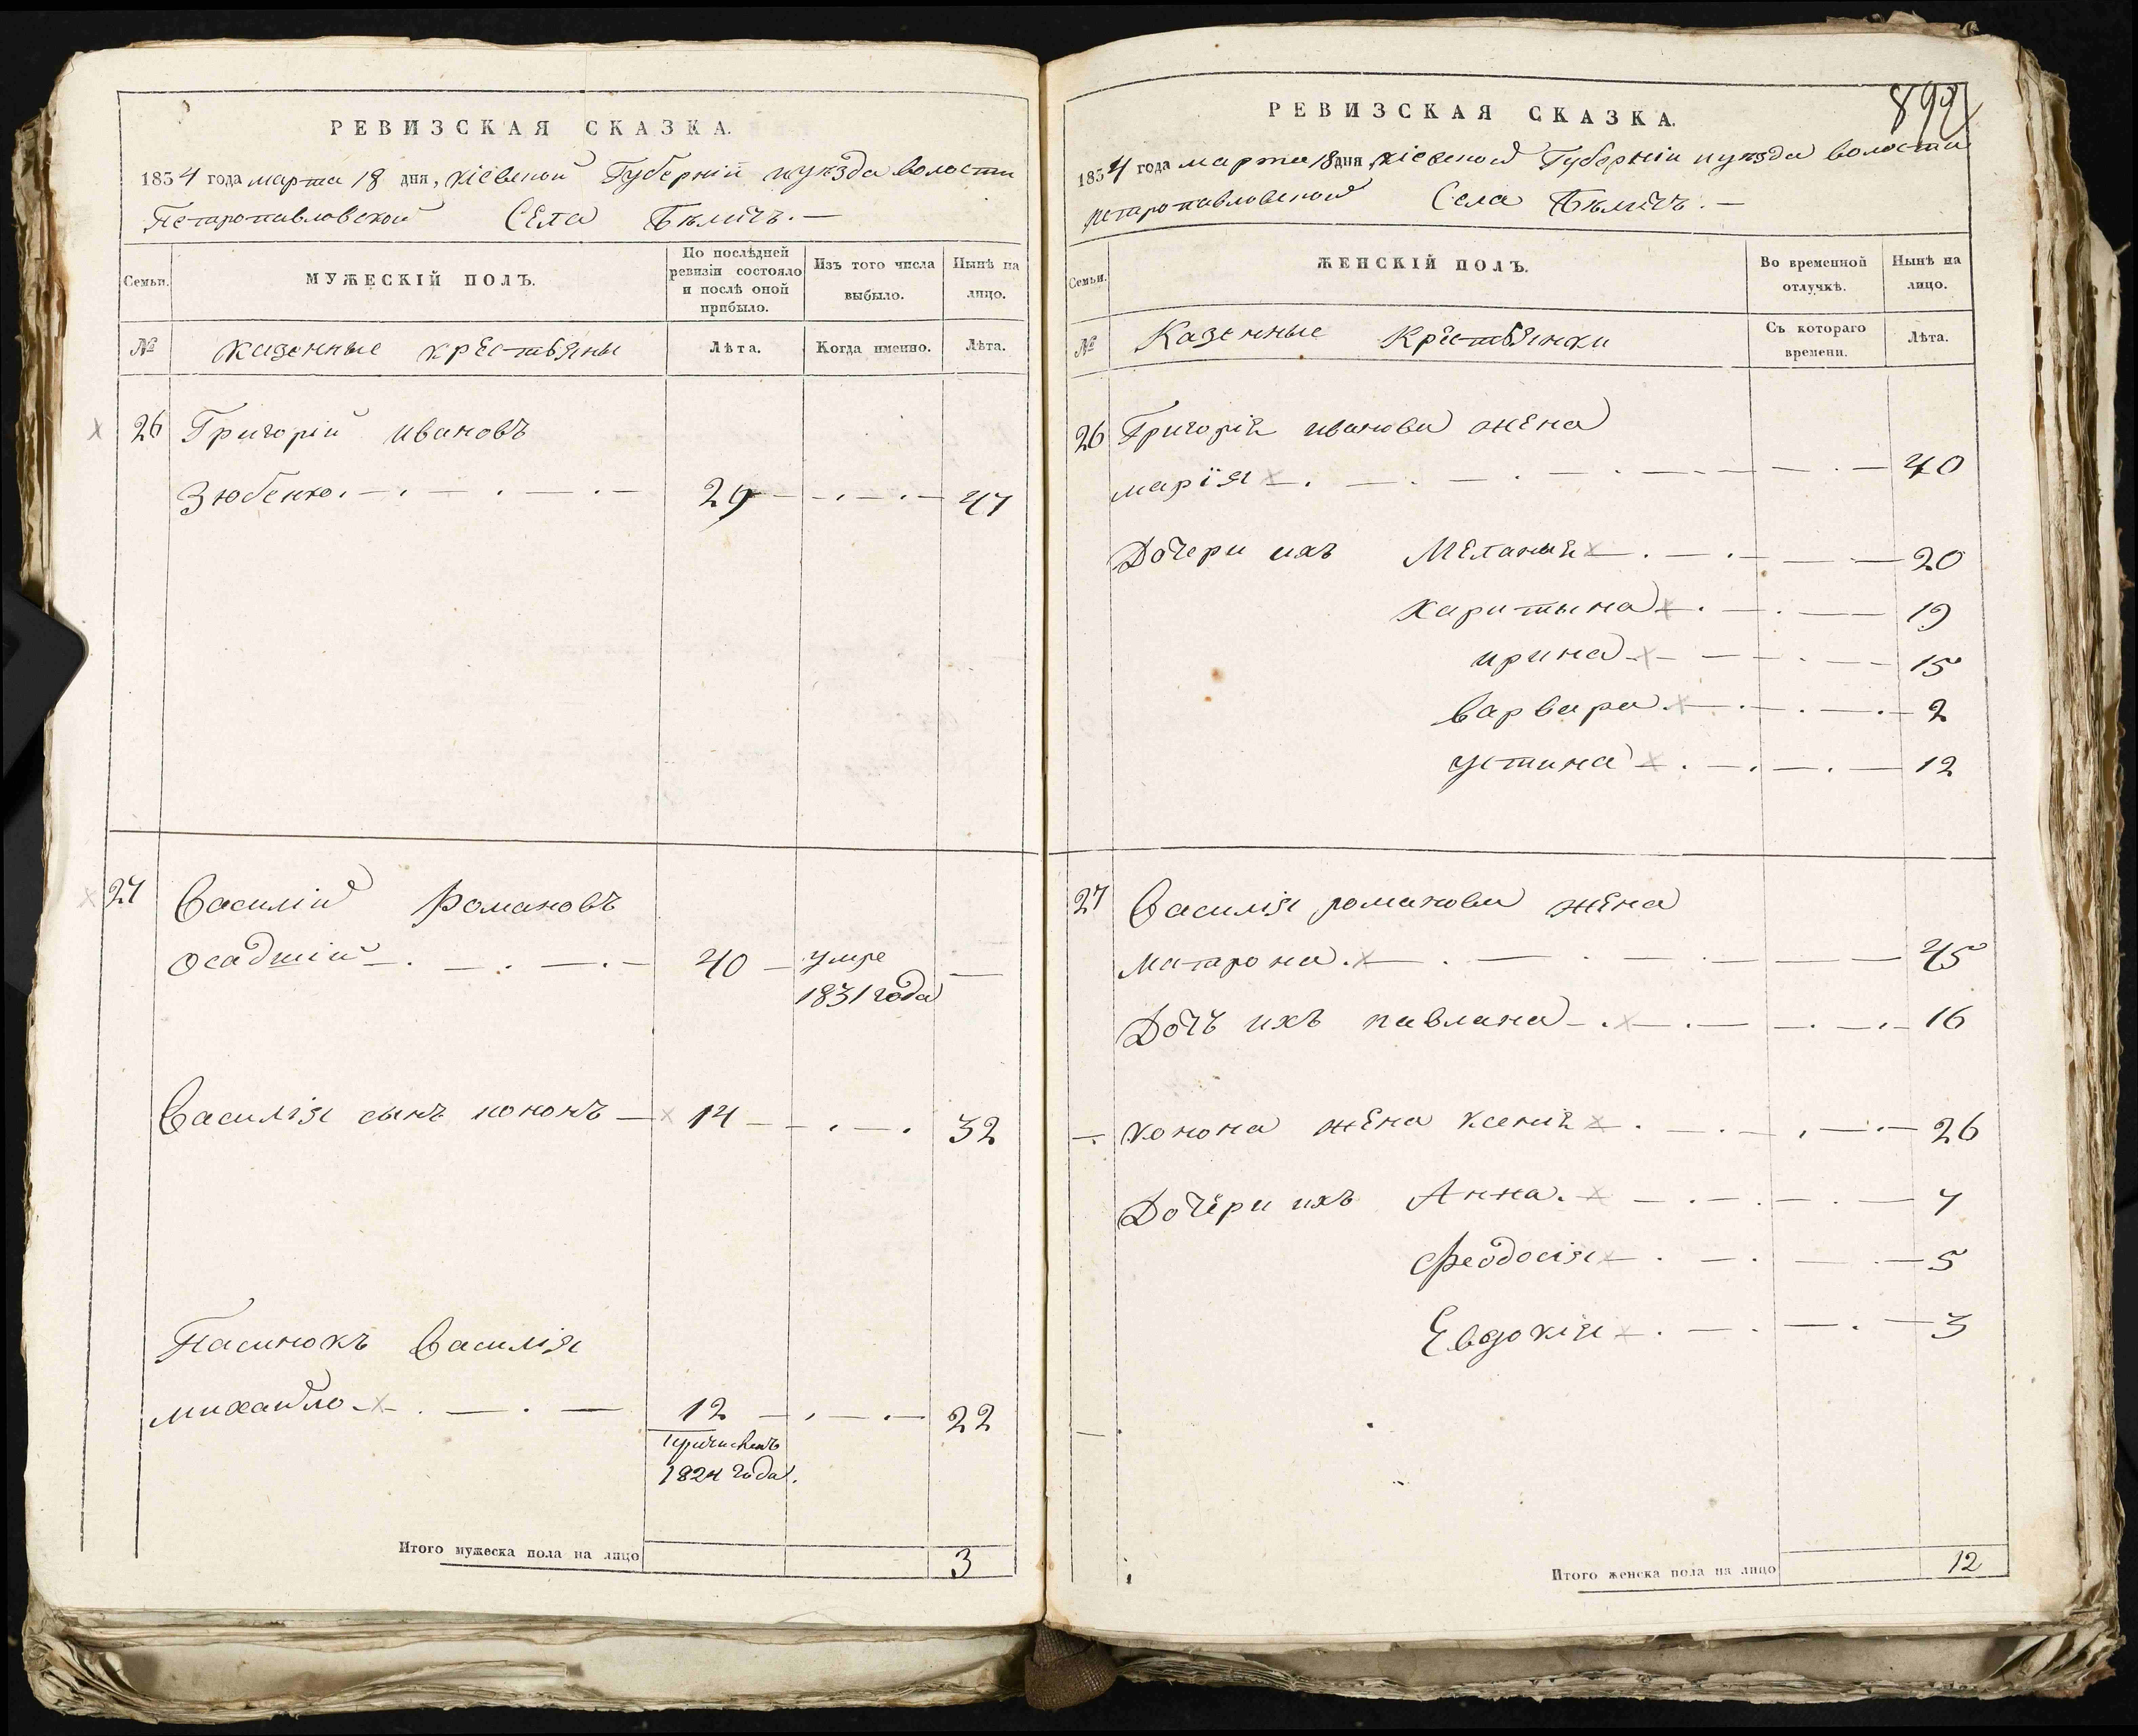 РЕВИЗСКАЯ СКАЗКА.
1834 года марта 18 дня, Кіевской Губерніи и уѣзда волости
Петропавловской Села Бѣличъ. —
Семьи.
МУЖЕСКІЙ ПОЛЪ.
По послѣдней ревизіи состояло и послѣ оной прибыло.
Изъ того числа выбыло.
Нынѣ на лицо.
№
Казенные крестьяны
Лѣта.
Когда именно.
Лѣта.
26 Григорій ивановъ
Зюбенко. 29 47
27 Василій Романовъ
Осадшій 40 умре —
1831 года
Василія сынъ кононъ 14 32
Пасинокъ Василія
михайло 12 22
причисленъ
1824 года.
Итого мужеска пола на лицо 3
899
РЕВИЗСКАЯ СКАЗКА.
1834 года марта 18 дня, Кіевской Губерніи и уѣзда волости
петропавловской Села Бѣличъ. —
Семьи.
ЖЕНСКІЙ ПОЛЪ.
Во временной отлучкѣ.
Нынѣ на лицо.
№
Казенные Крестьянки
Съ котораго времени.
Лѣта.
26 Григорія иванова жена
марія 40
Дочери ихъ Меланія 20
Харитына 19
ирина 15
варвара 2
устина 12
27 Василія романова жена
матрона 45
Дочъ ихъ павлина 16
конона жена ксенія 26
Дочери ихъ Анна 7
Феодосія 5
Евдокія 3
Итого женска пола на лицо 12